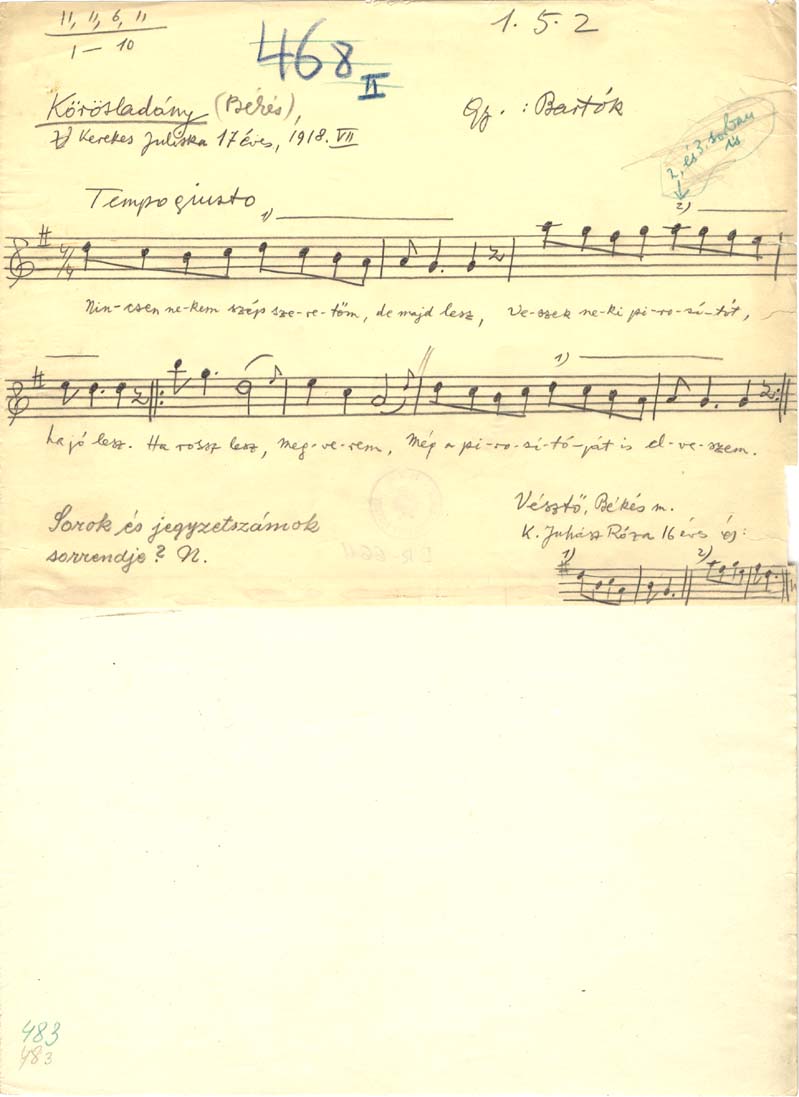 11, 11, 6, 11
1 – 10
468
II
1. 5. 2
Körösladány (Békés),
Gy. : Bartók
Kerekes Juliska 17 éves, 1918. VII
2, és 3. sorban
is
Tempo giusto
1)
2)
4/4
Nin-csen ne-kem szép sze-re-tőm, de majd lesz, Ve-szek ne-ki pi-ro-sí-tót,
1)
ha jó lesz. Ha rossz lesz, meg-ve-rem, Még a pi-ro-sí-tó-ját is el-ve-szem.
Sorok és jegyzetszámok
sorrendje? N.
Vésztő, Békés m.
K. Juhász Róza 16 éves és:
1)
2)
483
483